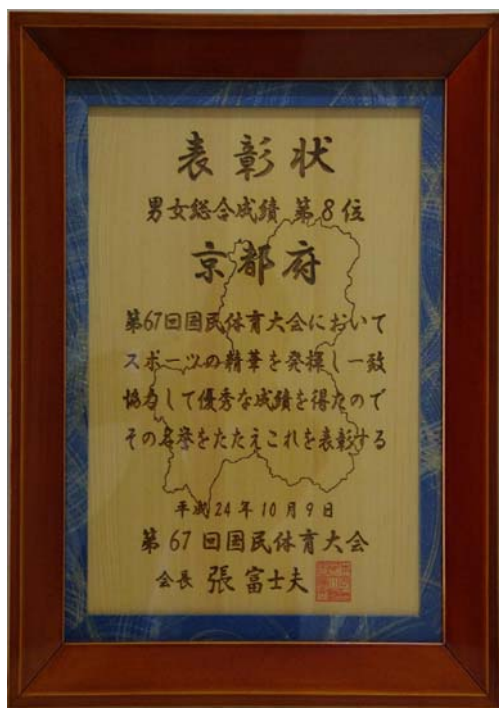 表彰状
男女総合成績 第8位
京都府
第67回国民体育大会において
スポーツの精華を発揮し一致
協力して優秀な成績を得たので
その名誉をたたえこれを表彰する
平成24年10月9日
第67回国民体育大会
会長 張富士夫